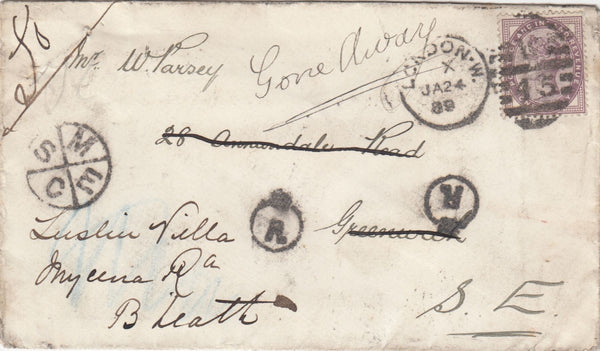 Mr W. Parsey
Gone Away
LONDON·W
X
JA 24
89
28 Annandale Road
Greenwich
S.E.
M E C S
R
R
Villa
Mycena Rd
B Heath